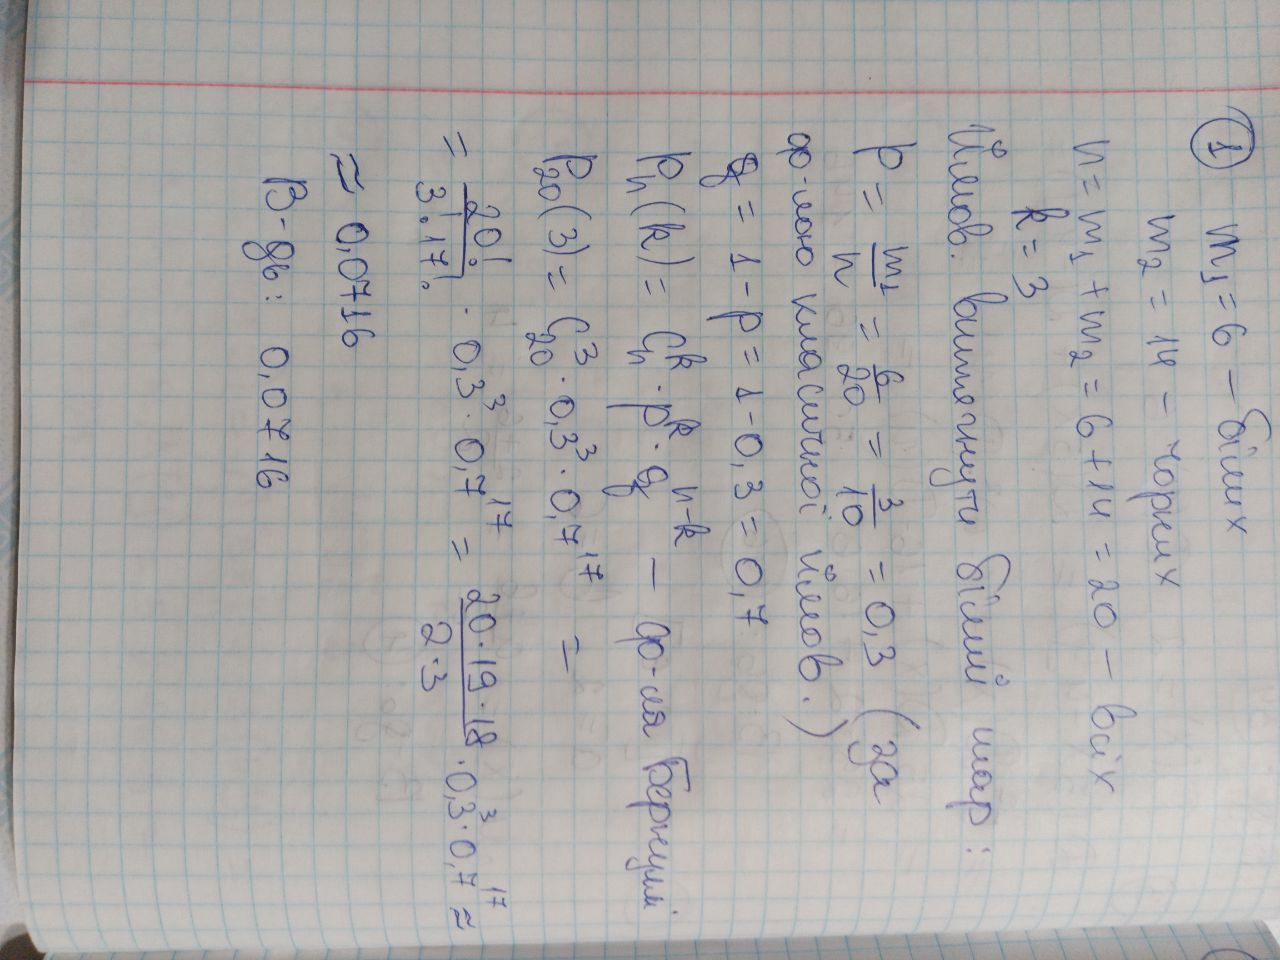 1 m₁ = 6 – білих
m₂ = 14 – чорних
n = m₁ + m₂ = 6 + 14 = 20 – всіх
k = 3
Ймов. витягнути білий шар:
P = m₁/n = 6/20 = 3/10 = 0,3 (за
ф-лою класичної ймов.)
q = 1 - p = 1 - 0,3 = 0,7
Pₙ(k) = Cₙᵏ · pᵏ · qⁿ⁻ᵏ – ф-ла Бернуллі
P₂₀(3) = C₂₀³ · 0,3³ · 0,7¹⁷ =
= 20!/3!·17! · 0,3³ · 0,7¹⁷ = 20·19·18/2·3 · 0,3³ · 0,7¹⁷ ≈
≈ 0,0716
В-дь: 0,0716